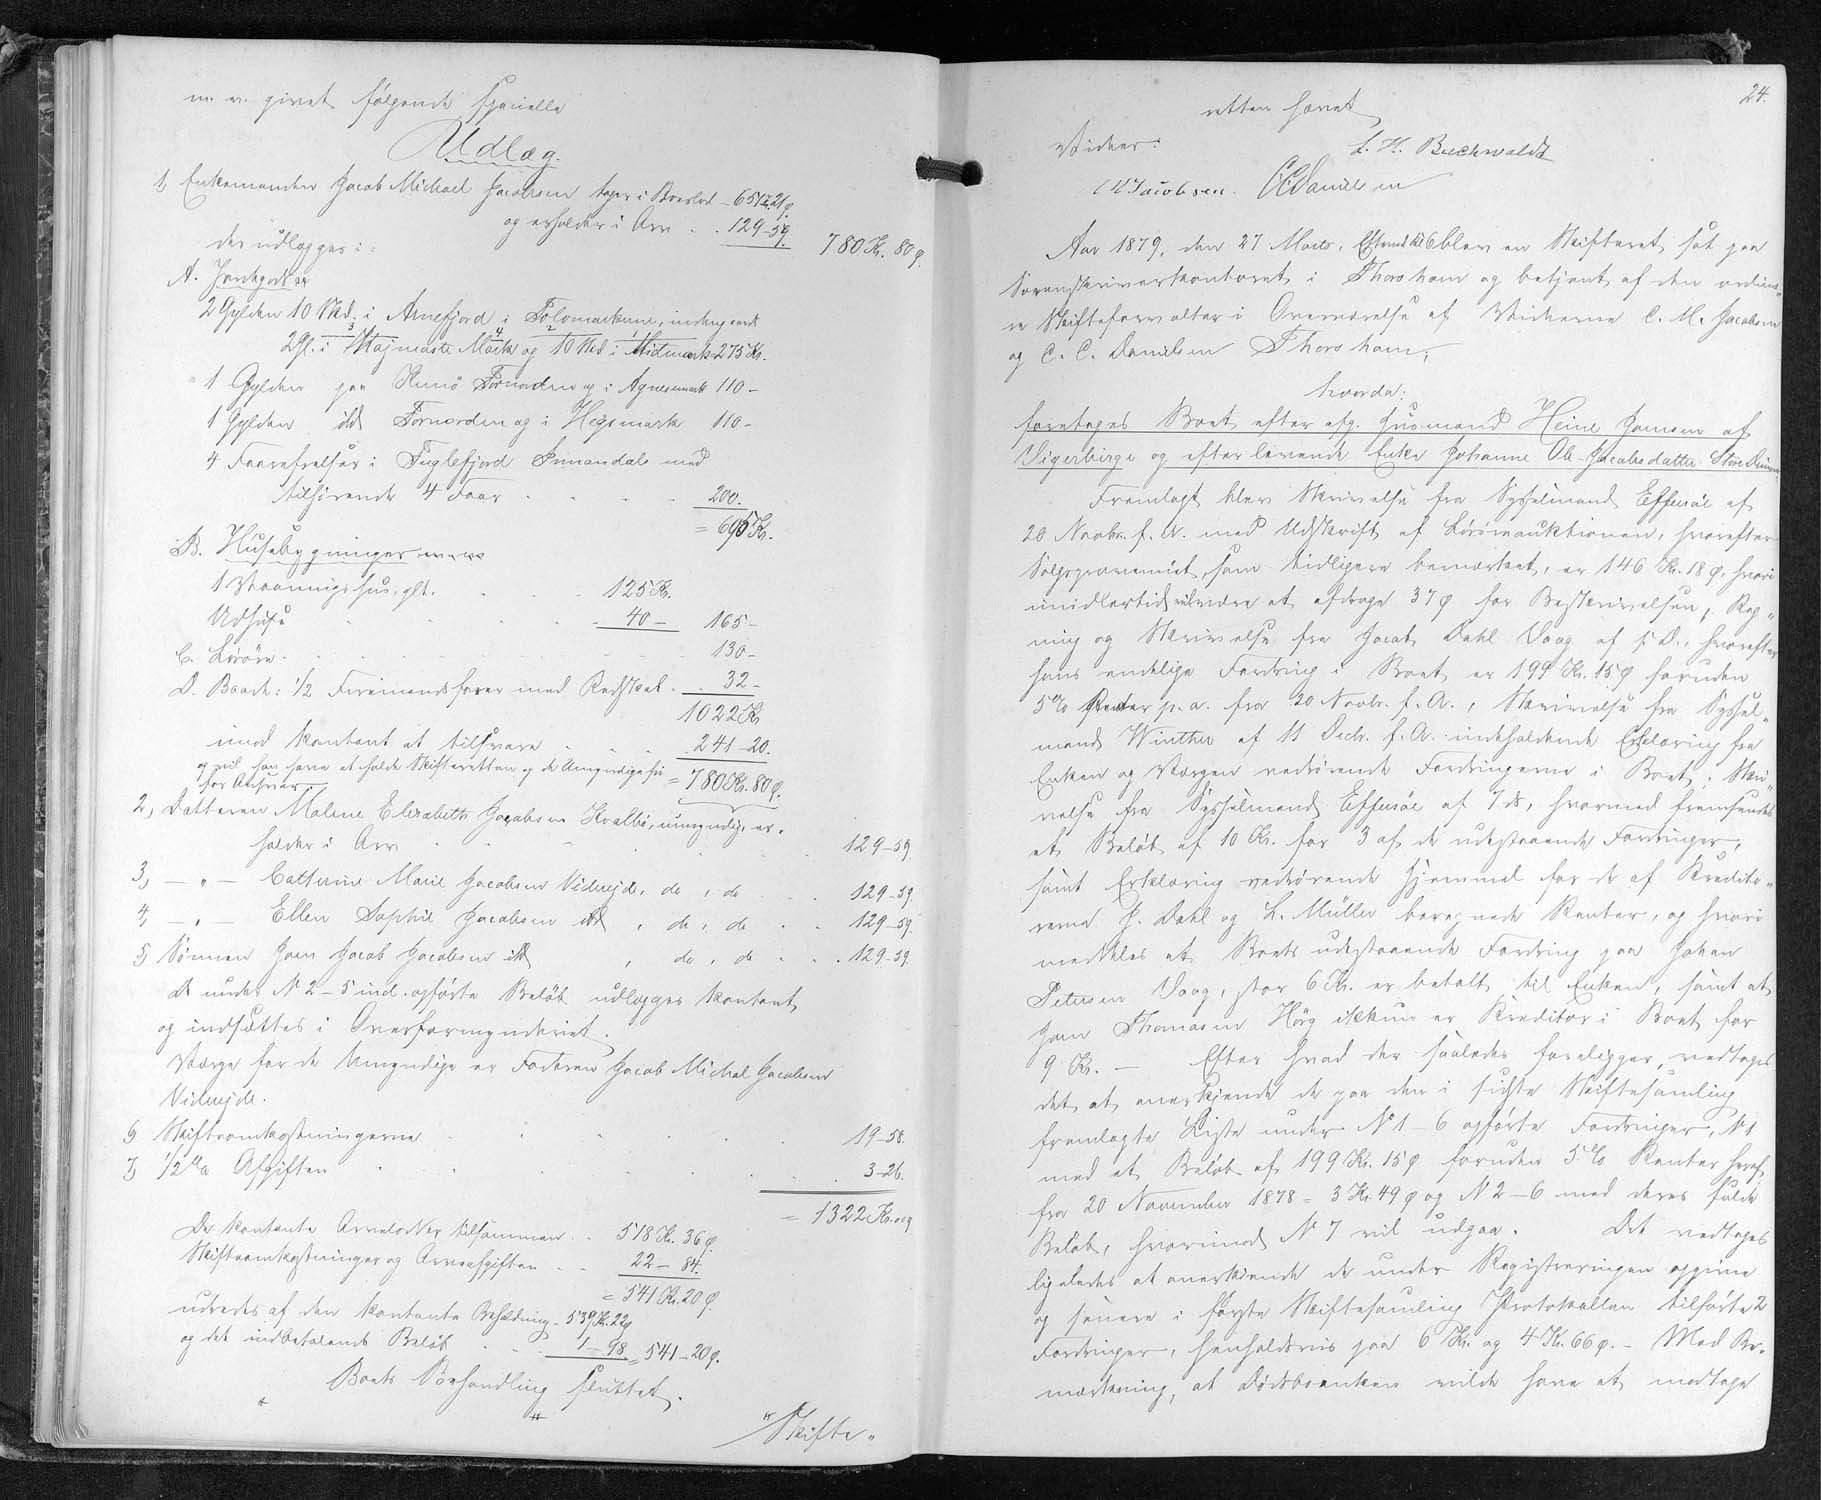 m. v. givet følgende specielle
Udlæg.
1, Enkemanden Jacob Michael Jacobsen tager i Boeslod - 651 Kr. 21 Ø
og erholder i Arv . . 129 - 59. 780 Kr. 80 Ø.
der udlægges i:
A. Jordegods
2 Gylden 10 Skd. i Arnefjord i Følomarkerne, indbegrebet
2 Gl. i Højmaste Mark og 10 Skd i Midmark 275 Kr.
1 Gylden paa Kunø Fornorden og i Agnesmark 110 -
1 Gylden ibd Fornorden og i Hegsmark 110 -
4 Faarefrelser i Fuglefjord Innandals med
tilhørende 4 Faar . . . . 200.
= 695 Kr.
B. Husebygninger
1 Vaaningshus, glt. . . . 125 Kr.
Udhuse . . . 40 - 165 -
C. Løsøre . . . 130 -
D. Baad: 1/2 Firemandsfarer med Redskab . . 32 -
1022 Kr
imod kontant at tilsvare . . . 241 - 20.
og vil han have at holde Skifteretten og de Umyndige fri
for Ansvar = 780 Kr. 80 Ø.
2, Datteren Malene Elisabeth Jacobsen Kvalbø, umyndig, er-
holder i Arv . . . 129 - 59.
3, - " - Cathrine Marie Jacobsen Viderejde, do, do . . . 129 - 59.
4, - " - Ellen Sophie Jacobsen ibd, do, do . . 129 - 59.
5, Sønnen Joen Jacob Jacobsen ibd, do, do . . . 129 - 59.
De under N 2 - 5 incl. opførte Beløb udlægges kontant
og indsættes i Overformynderiet.
Værge for de Umyndige er Faderen Jacob Michal Jacobsen
Viderejde.
6 Skifteomkostningerne . . . 19 - 58.
7, 1/2 % Afgiften . . . 3 - 26.
= 1322 Kr.
De kontante Arvelodder tilsammen . . 518 Kr. 36 Ø.
Skifteomkostninger og Arveafgiften . . 22 - 84.
= 541 Kr. 20 Ø.
udredes af den kontante Beholdning - 539 Kr. 22 Ø
og det indbetalende Beløb . . . 1 - 98 = 541 - 20 Ø.
Boets Behandling sluttet.
"Skifte„
24.
retten hævet
Vidner: L. H. Buchwaldt
C M Jacobsen. C C Danielsen
Aar 1879, den 27 Marts, Eftermd Kl 6 blev en Skifteret sat paa
Sorenskriverkontoret i Thorshavn og betjent af den ordinæ„
re Skifteforvalter i Overværelse af Vidnerne C. M. Jacobsen
og C. C. Danielsen Thorshavn,
hvorda:
foretoges Boet efter afg. Husmand Heine Joensen af
Vigerbirge og efterlevende Enke Johanne Ole Jacobsdatter Store Dimon
Fremlagt blev Skrivelse fra Sysselmand Effersøe af
20 Novbr. f. A. med Udskrift af Løsøreauktionen, hvorefter
Salgsprovenuet, som tidligere bemærket, er 146 Kr. 18 Ø, hvori
imidlertid vil være at afdrage 37 Ø for Beskrivelsen, Reg„
ning og Skrivelse fra Jacob Dahl Vaag af s. D., hvorefter
hans endelige Fordring i Boet er 199 Kr. 15 Ø foruden
5 % Renter p. a. fra 20 Novbr. f. A., Skrivelse fra Syssel„
mand Winther af 11 Decbr. f. A. indeholdende Erklæring fra
Enken og Værgen vedrørende Fordringerne i Boet, Skri„
velse fra Sysselmand Effersøe af 7 ds, hvormed fremsendes
et Beløb af 10 Kr. for 3 af de udestaaende Fordringer,
samt Erklæring vedrørende Hjemmel for de af Kredito„
rerne J. Dahl og L. Müller beregnede Renter, og hvori
meddeles at Boets udestaaende Fordring paa Johan
Petersen Vaag, stor 6 Kr. er betalt til Enken, samt at
Joen Thomasen Hørg ikkun er Kreditor i Boet for
9 Kr. - Efter hvad der saaledes foreligger, vedtoges
det at anerkjende de paa den i sidste Skiftesamling
fremlagte Liste under N 1 - 6 opførte Fordringer, N 1
med et Beløb af 199 Kr. 15 Ø foruden 5 % Renter heraf
fra 20 November 1878 = 3 Kr. 49 Ø og N 2 - 6 med deres fulde
Beløb, hvorimod N 7 vil udgaa. Det vedtoges
ligeledes at anerkjende de under Registreringen opgivne
og senere i første Skiftesamling Protokollen tilførte 2
Fordringer, henholdsvis paa 6 Kr. og 4 Kr. 66 Ø. - Med Be-
mærkning, at Dødsboenken vilde have at modtage